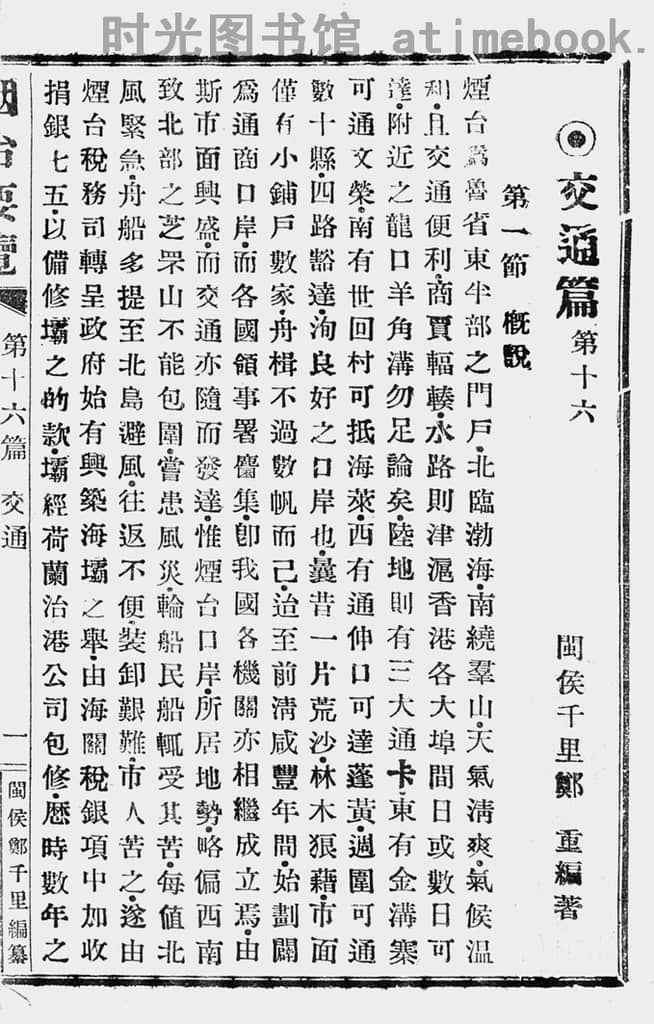 时光图书馆 atimebook.
交通篇 第十六 閩侯千里鄭 重編著
第一節 概說
煙台爲魯省東半部之門戶.北臨渤海.南繞羣山.天氣清爽.氣候温
和.且交通便利.商賈輻輳.水路則津滬香港各大埠間日或數日可
達.附近之龍口羊角溝勿足論矣.陸地則有三大通卡.東有金溝寨
可通文榮.南有世回村可抵海萊.西有通伸口可達蓬黃.週圍可通
數十縣.四路豁達.洵良好之口岸也.曩昔一片荒沙.林木狼藉.市面
僅有小鋪戶數家.舟楫不過數帆而己.迨至前淸咸豐年間.始劃闢
爲通商口岸.而各國領事署麕集.卽我國各機關亦相繼成立焉.由
斯市面興盛.而交通亦隨而發達.惟煙台口岸.所居地勢.略偏西南
致北部之芝罘山不能包圍.嘗患風災.輪船民船輒受其苦.每値北
風緊急.舟船多提至北島避風.往返不便.裝卸艱難.市人苦之.遂由
煙台稅務司轉呈政府始有興築海壩之舉.由海關稅銀項中加收
捐銀七五.以備修壩之的款.壩經荷蘭治港公司包修.歷時數年之
煙台要覽 第十六篇 交通 一 閩侯鄭千里編纂